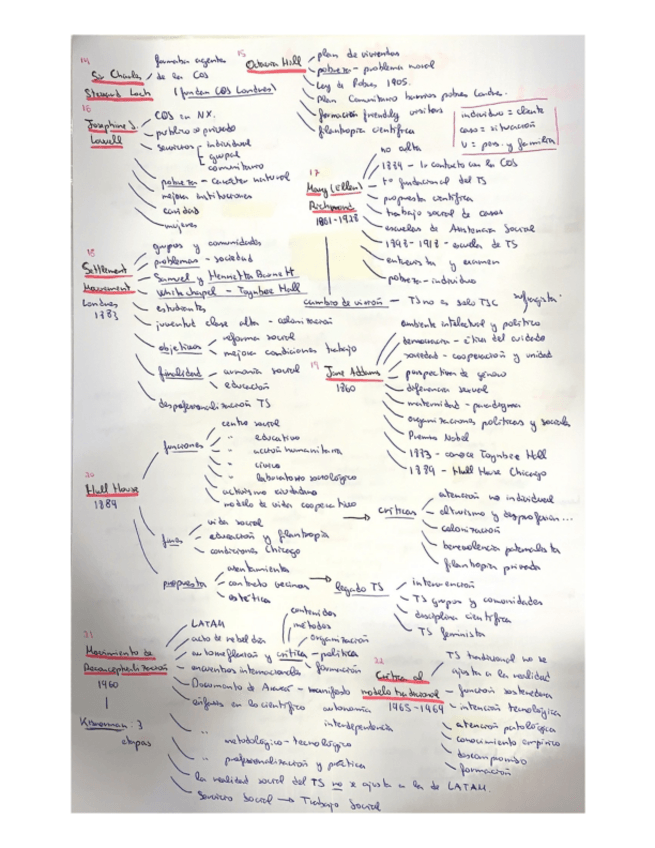 14
Sir Charles
Steward Loch
formaba agentes
de la COS
(fundan COS Londres)
15
Octavia Hill
plan de viviendas
pobreza - problema moral
Ley de Pobres 1905.
Plan Comunitario barrios pobres Londres.
formación friendly visitors
filantropía científica
individuo = cliente
caso = situación
U = pers. y familia
16
Josephine S.
Lowell
COS en NY.
público privado
servicios
individual
grupal
comunitario
pobreza - carácter natural
mejora instituciones
caridad
mujeres
17
Mary Ellen
Richmond
1861-1928
no alta
1889 - 1º contacto con la COS
1º fundacional del TS
propuesta científica
trabajo social de casos
escuelas de Asistencia Social
1898 - 1918 - escuela de TS
entrevista y examen
pobreza - individuo
cambio de visión - TS no es solo TSC
sufragista.
18
Settlement
Movement
Londres
1883
grupos y comunidades
problemas - sociedad
Samuel y Henrietta Barnett
Whitechapel - Toynbee Hall
estudiantes
juventud clase alta - colonización
objetivos
reforma social
mejora condiciones trabajo
finalidad
armonía social
educación
desprofesionalización TS
19
Jane Addams
1860
ambiente intelectual y político
democracia - ética del cuidado
sociedad - cooperación y unidad
perspectiva de género
diferencia sexual
maternidad - paradigma
organizaciones políticas y sociales
Premio Nobel
1883 - conoce Toynbee Hall
1889 - Hull House Chicago
20
Hull House
1889
funciones
centro social
" educativo
" acción humanitaria
" cívico
" laboratorio sociológico
activismo ciudadano
modelo de vida cooperativo
fines
vida social
educación y filantropía
condiciones Chicago
propuesta
asentamientos
contacto vecinos
estética
→ críticas
atención no individual
altruismo y desprofesión...
colonización
benevolencia paternalista
filantropía privada
→ legado TS
intervención
TS grupos y comunidades
disciplina científica
TS feminista
21
Movimiento de
Reconceptualización
1960
Kisnerman: 3
etapas
LATAM
acto de rebeldía
autoreflexión y crítica - política
contenidos
métodos
organización
formación
encuentros internacionales
Documento de Araxá - manifiesto
énfasis en lo científico
autonomía
interdependencia
" metodológico - tecnológico
" profesionalización y práctica
la realidad social del TS no se ajusta a la de LATAM.
Servicio Social → Trabajo Social
22
Crítica al
modelo tradicional
1965-1969
TS tradicional no se
ajusta a la realidad
función sostenedora
intención tecnológica
atención patológica
conocimiento empírico
descompromiso
formación